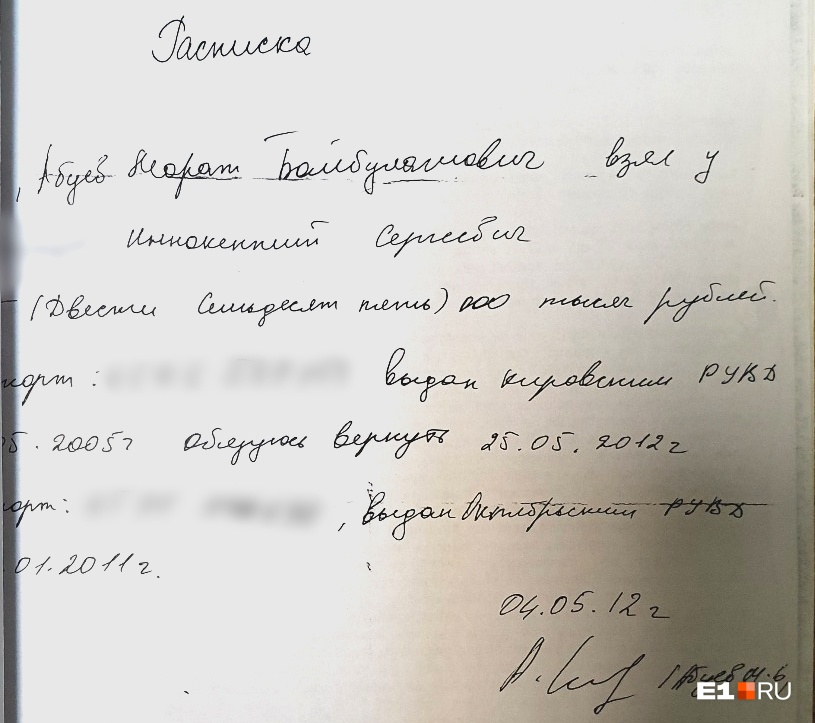 Расписка
, Абуев Марат Баймбулатович взял у
Иннокентий Сергеевич
(Двести Семьдесят пять) 000 тысяч рублей.
порт: выдан Кировским РУВД
05.2005г обязуюсь вернуть 25.05.2012г
орт: , выдан Октябрьским РУВД
.01.2011г.
04.05.12г
Абуев М.Б
E1.RU